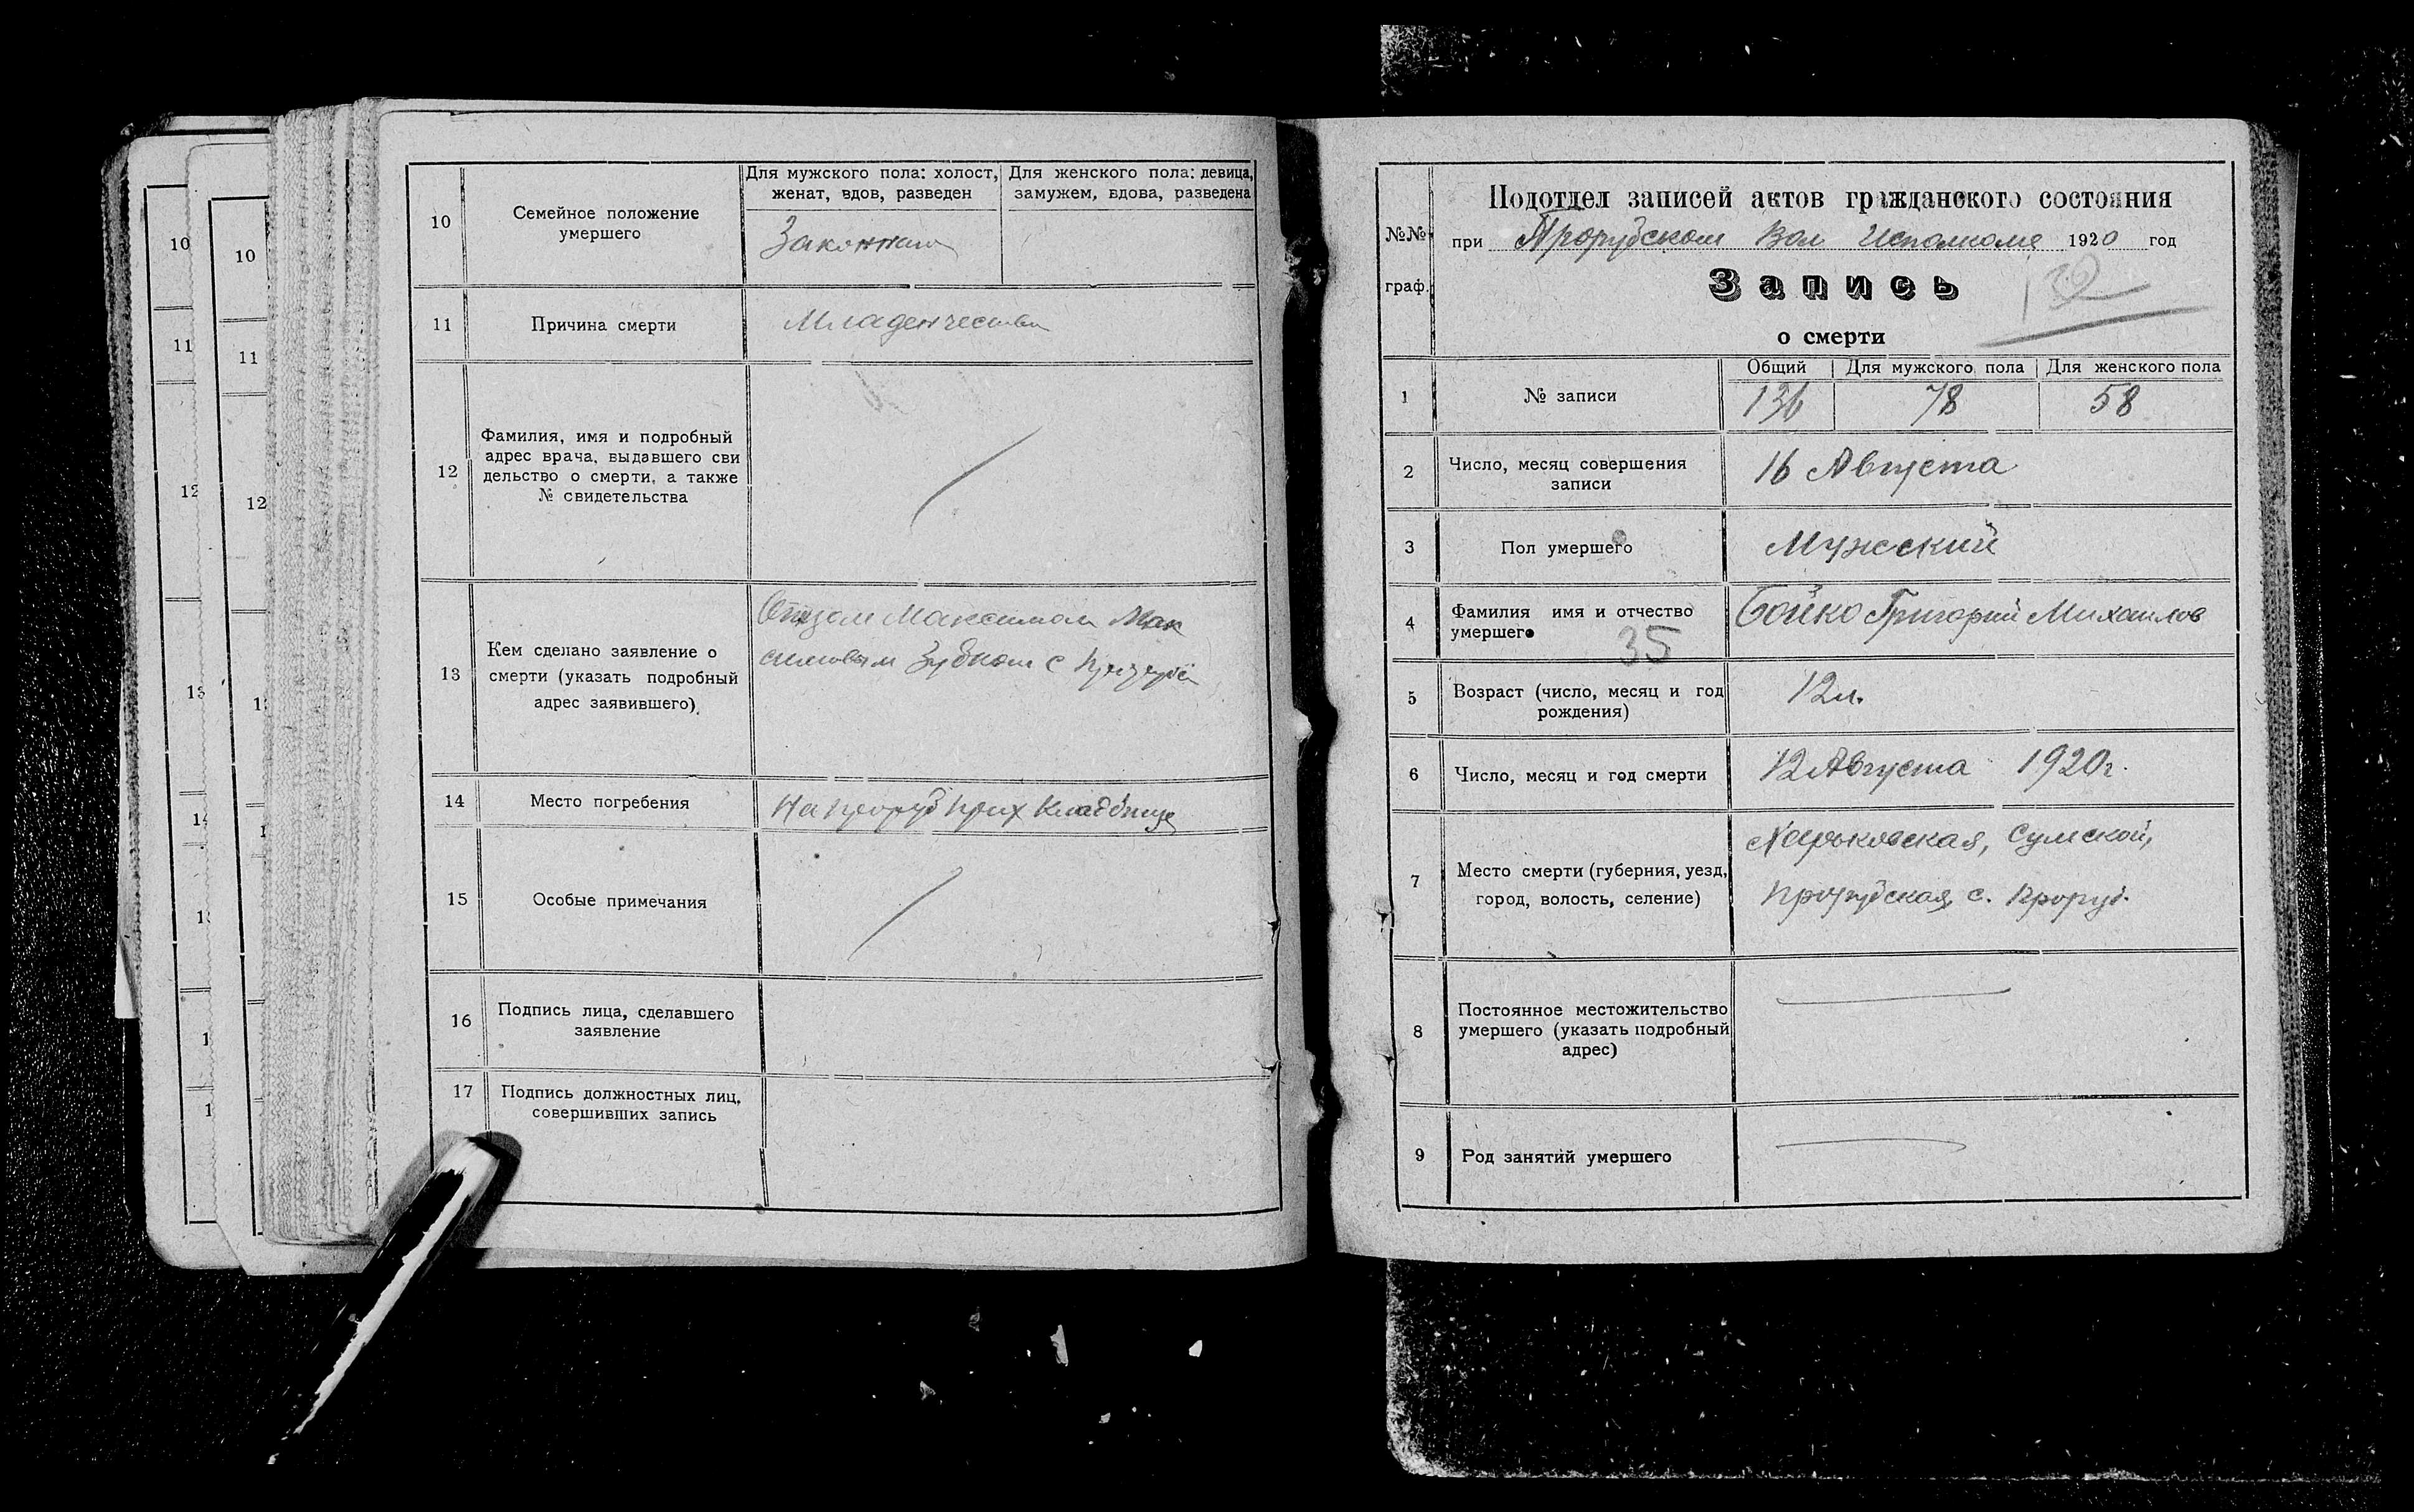 10
11
12
13
14
10
11
12
10
Семейное положение
умершего
Для мужского пола: холост,
женат, вдов, разведен
Для женского пола: девица,
замужем, вдова, разведена
Законная
11
Причина смерти
Младенчества
12
Фамилия, имя и подробный
адрес врача, выдавшего сви
дельство о смерти, а также
№ свидетельства
13
Кем сделано заявление о
смерти (указать подробный
адрес заявившего)
Отцом Максимом Мак
симовым Зубком с
14
Место погребения
На Проруб прих кладбище
15
Особые примечания
16
Подпись лица, сделавшего
заявление
17
Подпись должностных лиц,
совершивших запись
№№
граф.
Подотдел записей актов гражданского состояния
при Прорубском Вол Исполкоме 1920 год
Запись
о смерти
1
№ записи
Общий
Для мужского пола
Для женского пола
136
78
58
2
Число, месяц совершения
записи
16 Августа
3
Пол умершего
Мужский
4
Фамилия имя и отчество
умершего
35
Бойко Григорий Михаилов
5
Возраст (число, месяц и год
рождения)
12 л.
6
Число, месяц и год смерти
12 Августа 1920 г.
7
Место смерти (губерния, уезд,
город, волость, селение)
Харьковская, Сумской,
Прорубская, с. Проруб.
8
Постоянное местожительство
умершего (указать подробный
адрес)
9
Род занятий умершего